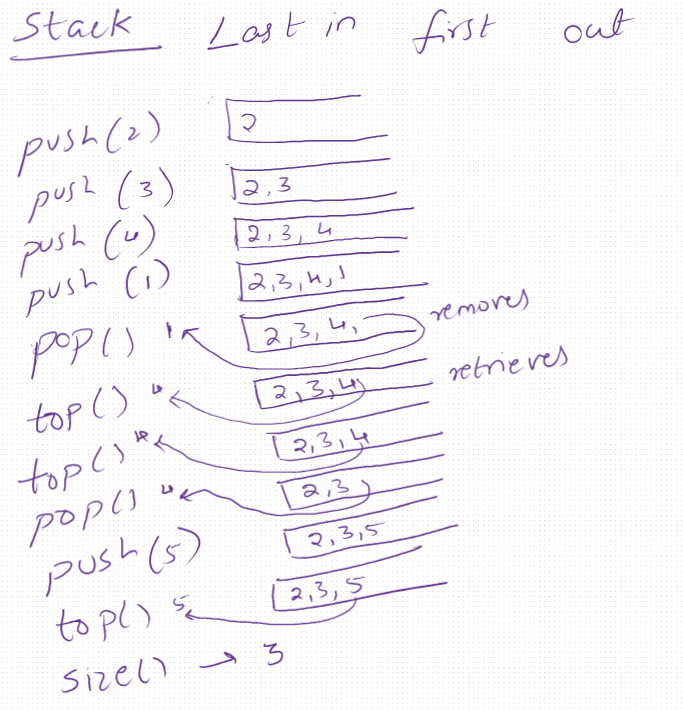 Stack Last in first out
push(2) 2
push (3) 2,3
push (4) 2,3,4
push (1) 2,3,4,1
pop() 1 2,3,4, removes
top() 4 2,3,4 retrieves
top() 4 2,3,4
pop() 4 2,3
push(5) 2,3,5
top() 5 2,3,5
size() → 3